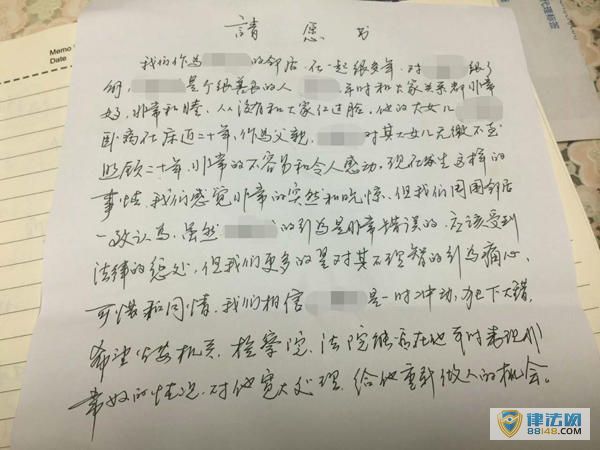 Memo
Date
請愿书
我们作为的邻居,在一起很多年,对很了
解,是个很善良的人,平时和大家关系都非常
好,非常和睦,从没有和大家红过脸,他的大女儿
卧病在床近二十年,作为父亲,对其大女儿无微不至
照顾二十年,非常的不容易和令人感动,现在发生这样的
事情,我们感觉非常的突然和吃惊,但我们周围邻居
一致认为,虽然的行为是非常错误的,应该受到
法律的惩处,但我们更多的是对其不理智的行为痛心,
可惜和同情,我们相信是一时冲动,犯下大错,
希望公安机关、检察院、法院能看在他平时表现非
常好的情况,对他宽大处理,给他重新做人的机会。
律法网
88148.com